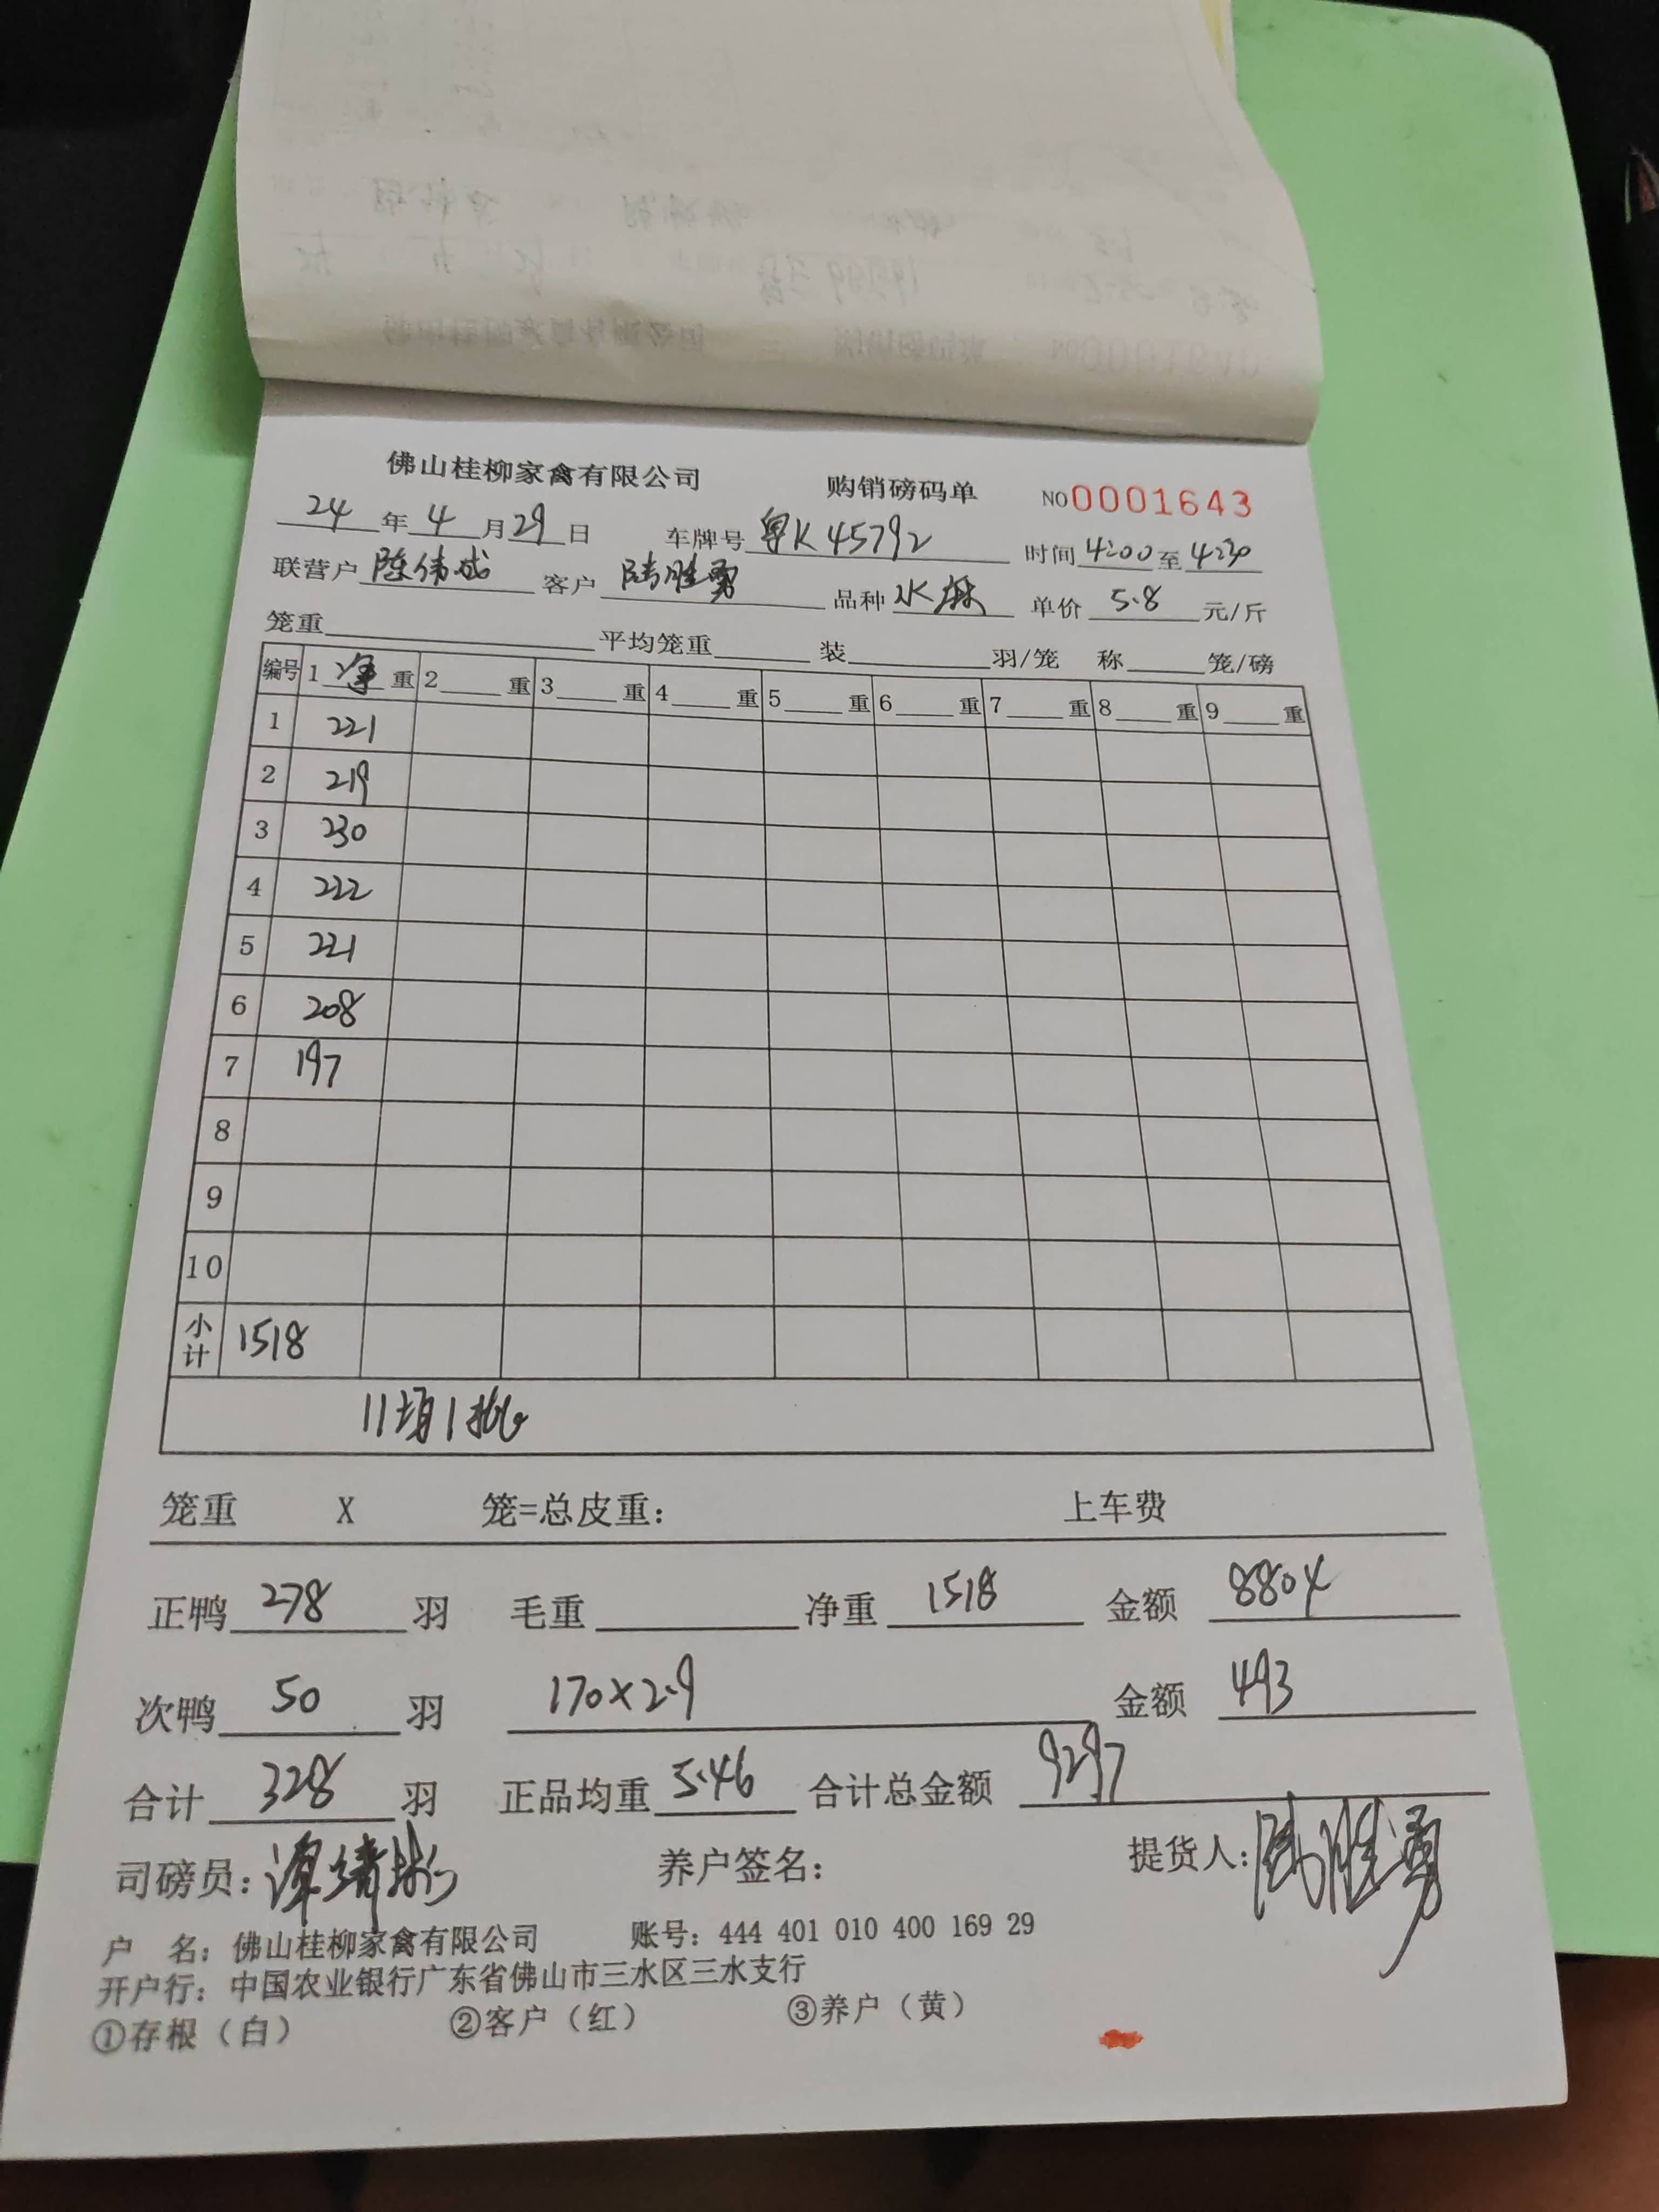 佛山桂柳家禽有限公司 购销磅码单 NO 0001643
24 年 4 月 29 日 车牌号 粤K45792 时间 4:00 至 4:30
联营户 陈伟成 客户 陆胜勇 品种 水麻 单价 5.8 元/斤
笼重 平均笼重 装 羽/笼 称 笼/磅
编号 1 净 重 2 重 3 重 4 重 5 重 6 重 7 重 8 重 9 重
1 221
2 219
3 230
4 222
5 221
6 208
7 197
8
9
10
小计 1518
11场1批
笼重 X 笼=总皮重: 上车费
正鸭 278 羽 毛重 净重 1518 金额 8804
次鸭 50 羽 170×2.9 金额 493
合计 328 羽 正品均重 5.46 合计总金额 9297
司磅员: 养户签名: 提货人: 陆胜勇
户 名: 佛山桂柳家禽有限公司 账号: 444 401 010 400 169 29
开户行: 中国农业银行广东省佛山市三水区三水支行
①存根（白） ②客户（红） ③养户（黄）